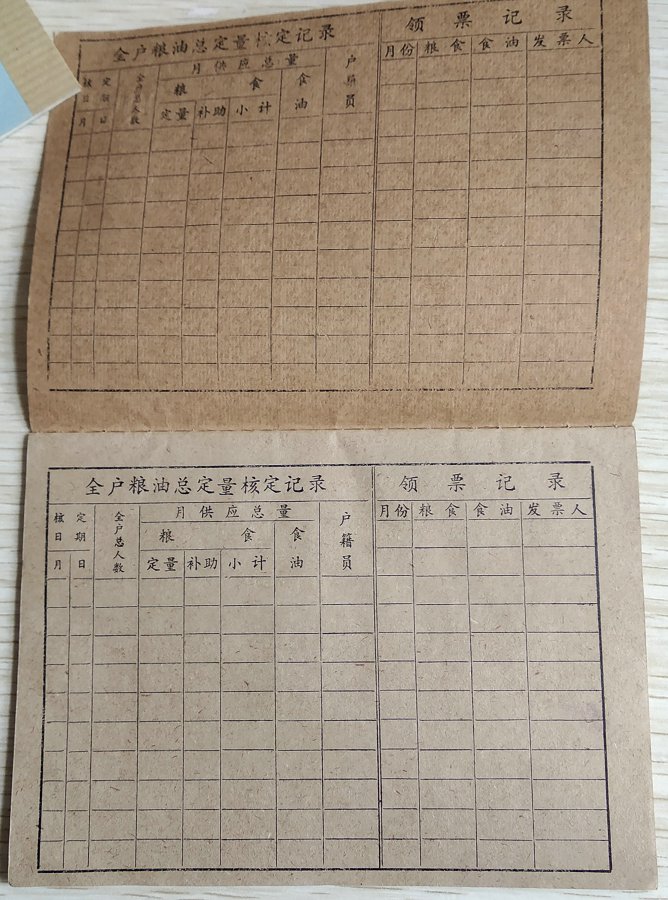 全户粮油总定量核定记录
领票记录
核定日期
月日
全户总人数
月供应总量
粮食
定量 补助 小计
食油
户籍员
月份 粮食 食油 发票人
全户粮油总定量核定记录
领票记录
核定日期
月日
全户总人数
月供应总量
粮食
定量 补助 小计
食油
户籍员
月份 粮食 食油 发票人